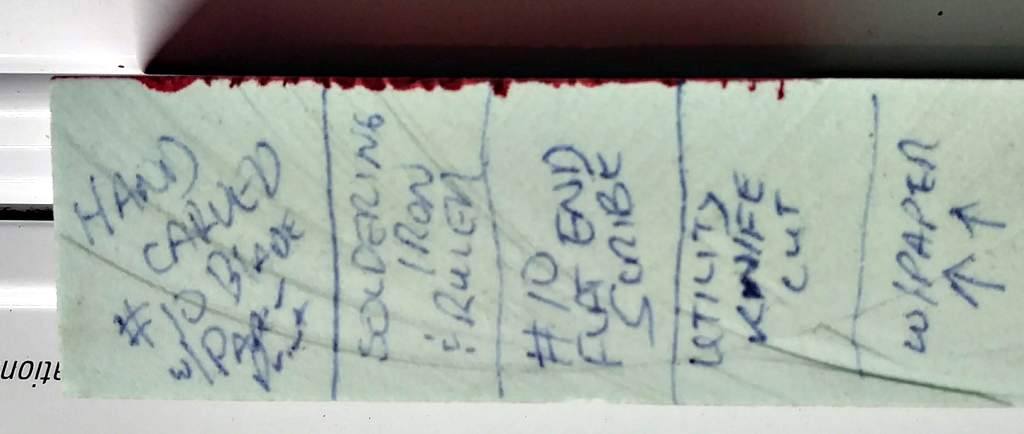 HAND
CARVED
# 10 BLADE
SOLDERING
IRON
& RULER
#10
FLAT END
SCRIBE
UTILITY
KNIFE
CUT
W/PAPER
↑ ↑